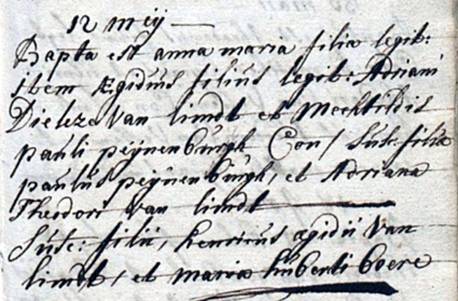 12 meij
Bapta est anna maria filia legib:
item Ægidius filius legib: Adriani
Van Lindt et Mechtildis
pauli peijnenburgh Con/ Sus: filiæ
paulus peijnenburgh, et Adriana
Theodori Van Lindt
Sus: filii, henricus ægidii Van
Lindt, et maria huberti boere